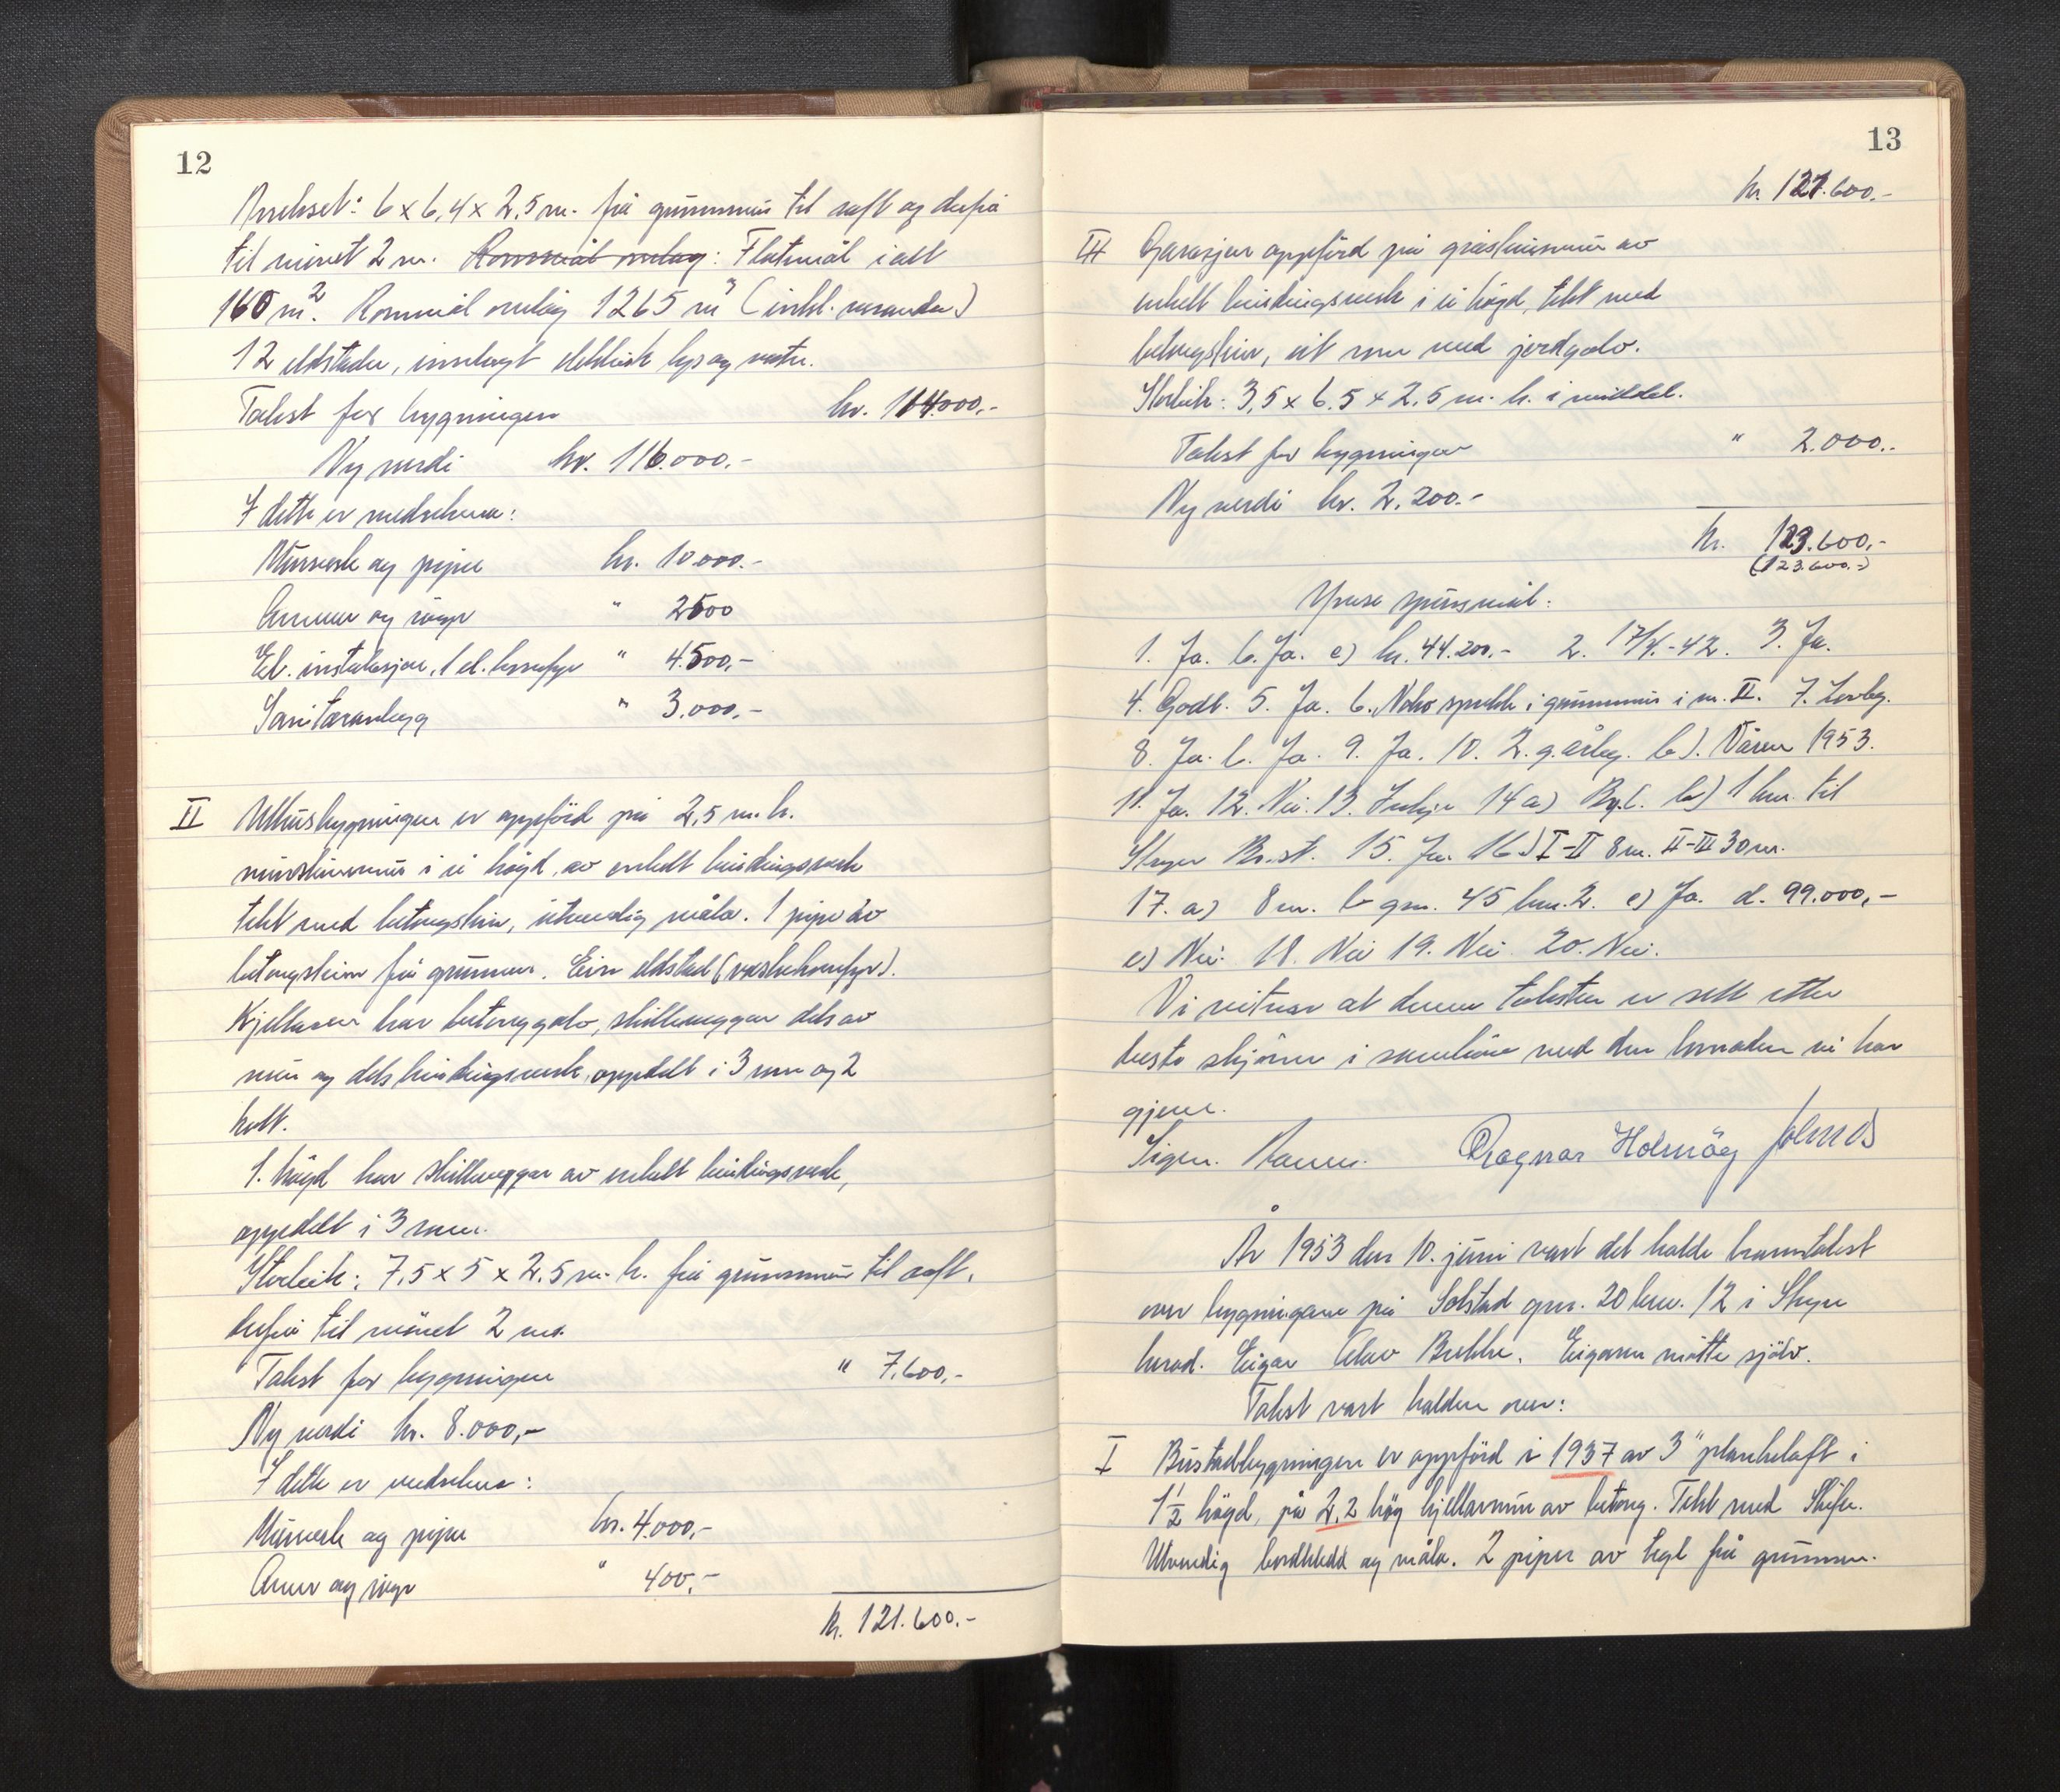 12
Annekset: 6 x 6,4 x 2,5 m. frå grunnmur til raft og derfrå
til mönet 2 m. Rommål omlag: Flatmål i alt
160 m². Rommål omlag 1265 m³ (inkl. veranda)
12 eldstader, innlagt elektrisk lys og vatn.
Takst for bygningen kr. 114.000,-
Ny verdi kr. 116.000.-
I dette er medrekna:
Murverk og pipe kr. 10.000.-
Omner og røyr " 2500
El. instalasjon, 1 el. komfyr " 4.500,-
Sanitæranlegg " 3.000,-
II Uthusbygningen er oppförd på 2,5 m. h.
mursteinsmur i ei högd, av enkelt bindingsverk
tekt med betongstein, utvendig måla. 1 pipe av
betongstein frå grunnen. Ein eldstad (vaskekomfyr).
Kjellaren har betonggolv, skilleveggar dels av
mur og dels bindingsverk, oppdelt i 3 rom og 2
kott.
1. högd har skilleveggar av enkelt bindingsverk,
oppdelt i 3 rom.
Storleik: 7,5 x 5 x 2,5 m. h. frå grunnmur til raft,
derfrå til mönet 2 m.
Takst for bygningen " 7.600,-
Ny verdi kr. 8.000,-
I dette er medrekna:
Murverk og pipe kr. 4.000,-
Omn og røyr " 400,-
kr. 121.600.-
13
kr. 121.600.-
III Garasjen oppförd på gråsteinsmur av
enkelt bindingsverk i ei högd, tekt med
betongstein, eit rom med jordgolv.
Storleik: 3,5 x 6.5 x 2.5 m. h. i middel.
Takst for bygningen " 2.000..
Ny verdi kr. 2.200.-
kr. 123.600,-
(123.600.-)
Ymse spursmål:
1. Ja. b. Ja. c) kr. 44.200.- 2. 17/4.-42. 3. Ja.
4. Godt. 5. Ja. 6. Noko sprekk i grunnmur i nr. II. 7. Lovleg.
8. Ja. b. Ja. 9. Ja. 10. 2. g. årleg. b). Våren 1953.
11. Ja. 12. Nei. 13. Innkjøp 14 a) Bgl. b) 1 km. til
Stryn Br.st. 15. Ja. 16) I-II 8 m. II-III 30 m.
17. a) 8 m. b gnr. 45 bnr. 2. c) Ja. d. 99.000,-
e) Nei. 18. Nei 19. Nei. 20. Nei.
Vi vitnar at denne taksten er sett etter
beste skjönn i samhöve med den kunnskap vi har
gjeve.
Sigm. Ragnar Holmöy
År 1953 den 10. juni vart det halde branntakst
over bygningane på Solstad gnr. 20 bnr. 12 i Stryn
herad. Eigar Olav Bukke. Eigaren mötte sjölv.
Takst vart halden over:
I Bustadbygningen er oppförd i 1937 av 3" plankelaft i
1½ högd, på 2,2 hög kjellarmur av betong. Tekt med Skifer.
Utvendig bordkledd og måla. 2 piper av tegl frå grunnen.